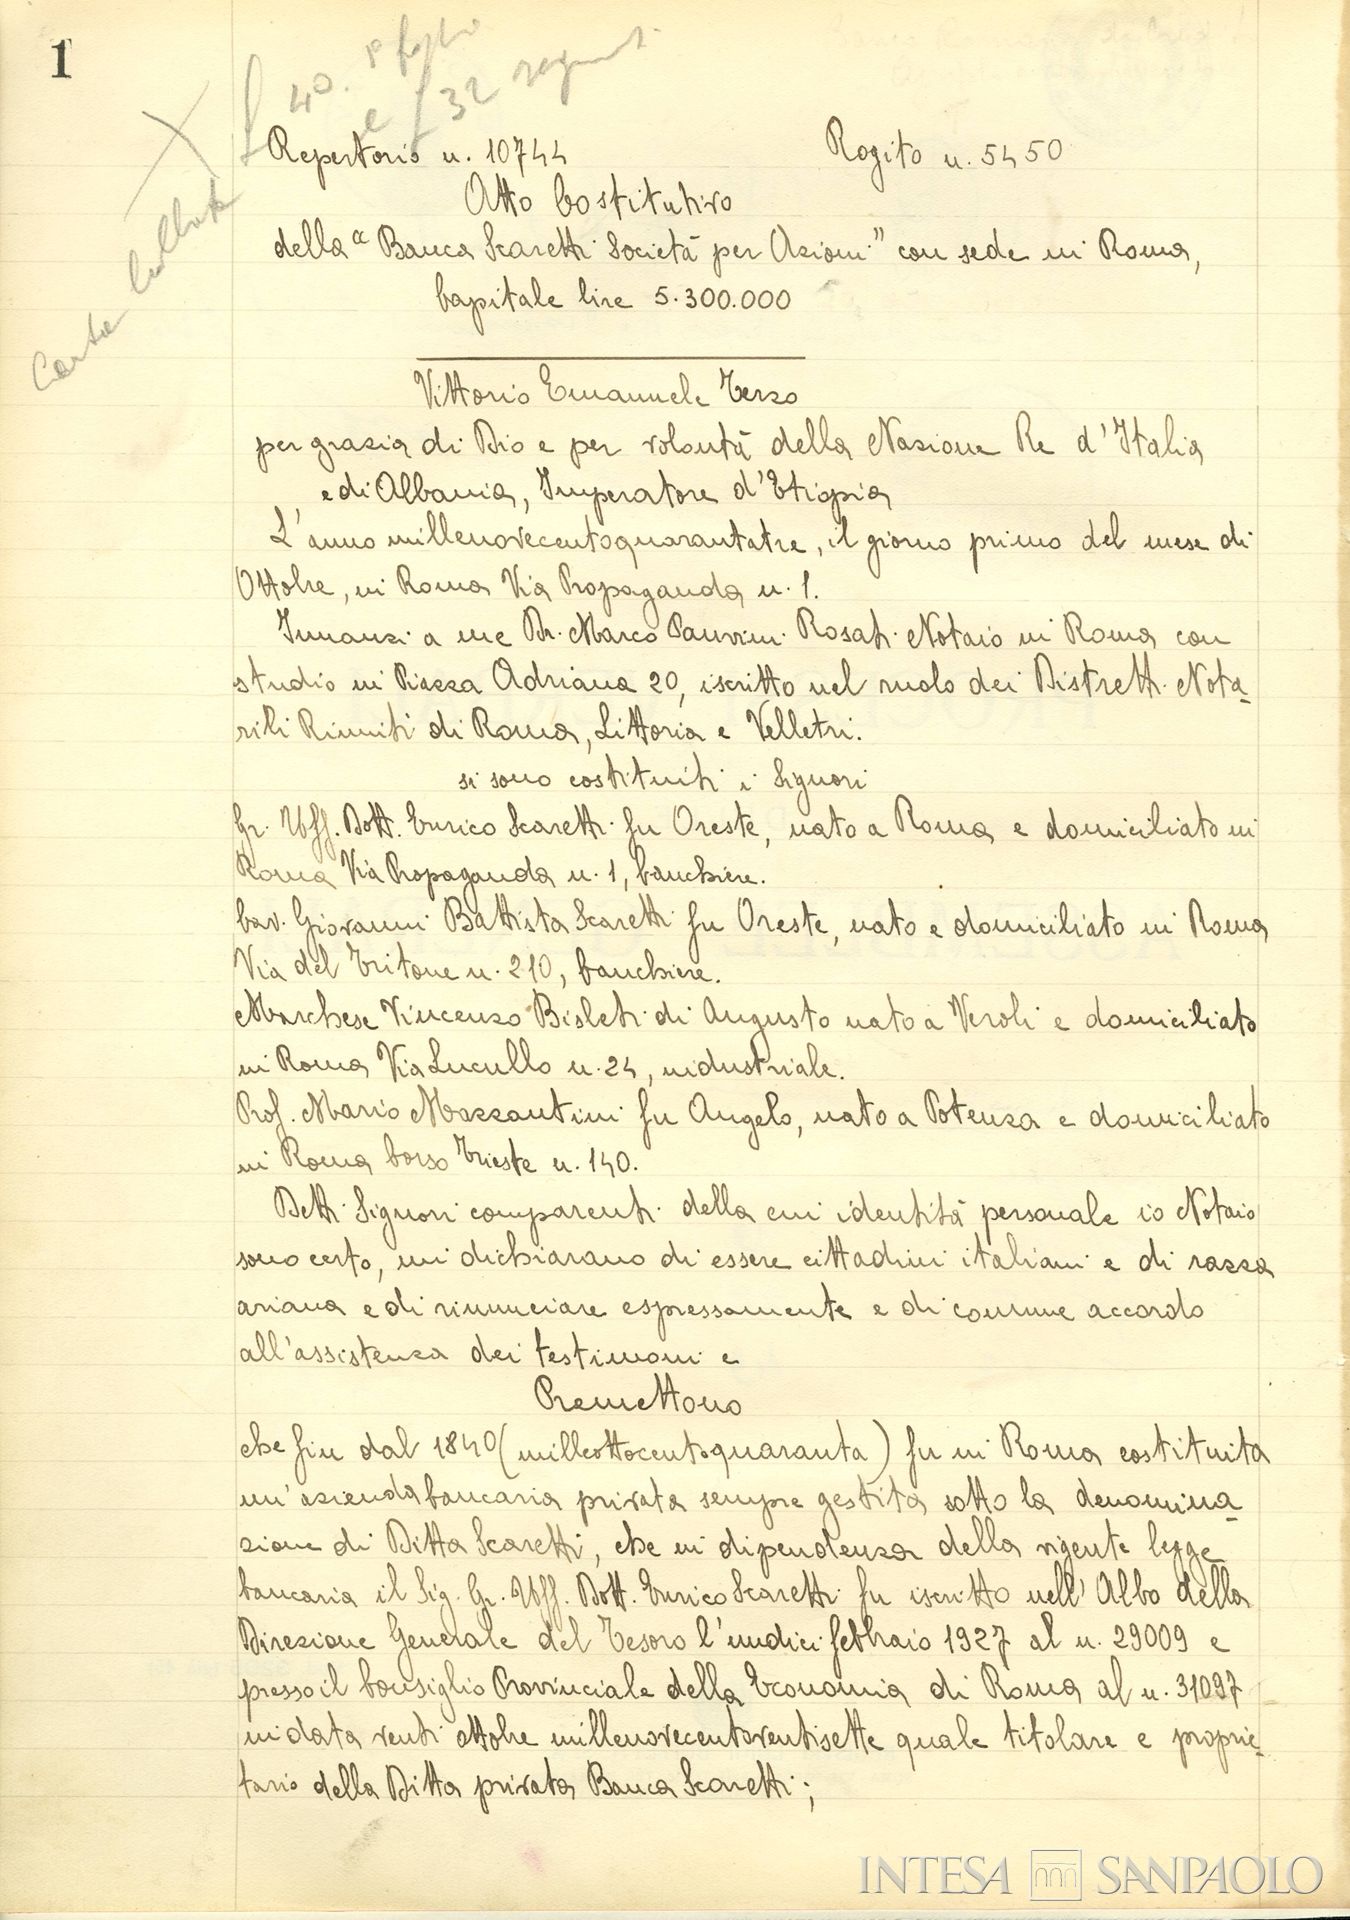 1
£ 40. 1° foglio
e £ 32 seguent.
Carta bollata
Repertorio n. 10744 Rogito n. 5450
Atto Costitutivo
della "Banca Scaretti Società per Azioni" con sede in Roma,
Capitale lire 5.300.000
Vittorio Emanuele Terzo
per grazia di Dio e per volontà della Nazione Re d'Italia
e di Albania, Imperatore d'Etiopia
L'anno millenovecentoquarantatre, il giorno primo del mese di
Ottobre, in Roma Via Propaganda n. 1.
Innanzi a me Dr. Marco Panvini Rosati Notaio in Roma con
studio in Piazza Adriana 20, iscritto nel ruolo dei Distretti Nota-
rili Riuniti di Roma, Littoria e Velletri.
si sono costituiti i Signori
Gr. Uff. Dott. Enrico Scaretti fu Oreste, nato a Roma e domiciliato in
Roma Via Propaganda n. 1, banchiere.
Cav. Giovanni Battista Scaretti fu Oreste, nato e domiciliato in Roma
Via del Tritone n. 210, banchiere.
Marchese Vincenzo Bisleti di Augusto nato a Veroli e domiciliato
in Roma Via Lucullo n. 24, industriale.
Prof. Mario Mazzantini fu Angelo, nato a Potenza e domiciliato
in Roma Corso Trieste n. 140.
Detti Signori comparenti della cui identità personale io Notaio
sono certo, mi dichiarano di essere cittadini italiani e di razza
ariana e di rinunciare espressamente e di comune accordo
all'assistenza dei testimoni e
Premettono
che fin dal 1840 (milleottocentoquaranta) fu in Roma costituita
un'azienda bancaria privata sempre gestita sotto la denomina-
zione di Ditta Scaretti, che in dipendenza della vigente legge
bancaria il Sig. Gr. Uff. Dott. Enrico Scaretti fu iscritto nell'Albo della
Direzione Generale del Tesoro l'undici febbraio 1927 al n. 29009 e
presso il Consiglio Provinciale della Economia di Roma al n. 31097
in data venti ottobre millenovecentoventisette quale titolare e proprie-
tario della Ditta privata Banca Scaretti;
INTESA SANPAOLO